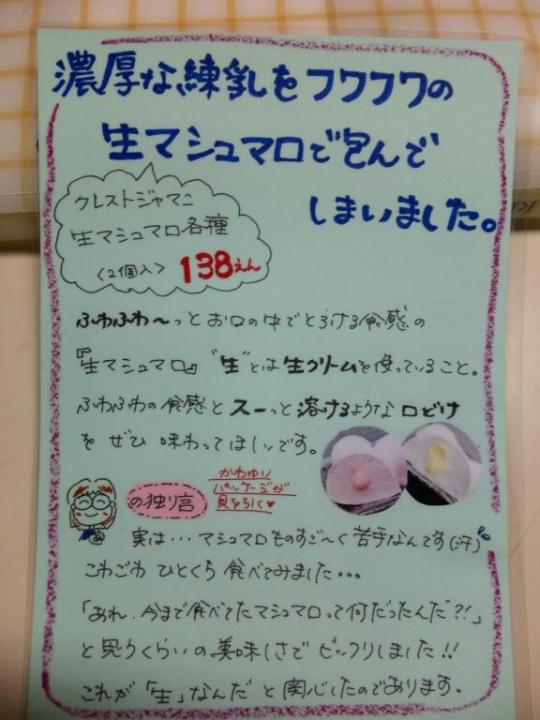 濃厚な練乳をフワフワの
生マシュマロで包んで
しまいました。
クレストジャマニ
生マシュマロ各種
〈2個入〉 138えん
ふわふわ〜っとお口の中でとろける食感の
『生マシュマロ』"生"とは生クリームを使っていること。
ふわふわの食感とスーっと溶けるような口どけ
を ぜひ 味わってほしいです。
の独り言
かわゆい
パッケージが
目を引く♥
実は… マシュマロものすご〜く苦手なんです(汗)
こわごわ ひとくち 食べてみました…
「あれ、今まで食べてたマシュマロって何だったんだ?!」
と思うくらいの美味しさでビックリしました!!
これが「生」なんだ と関心したのであります。